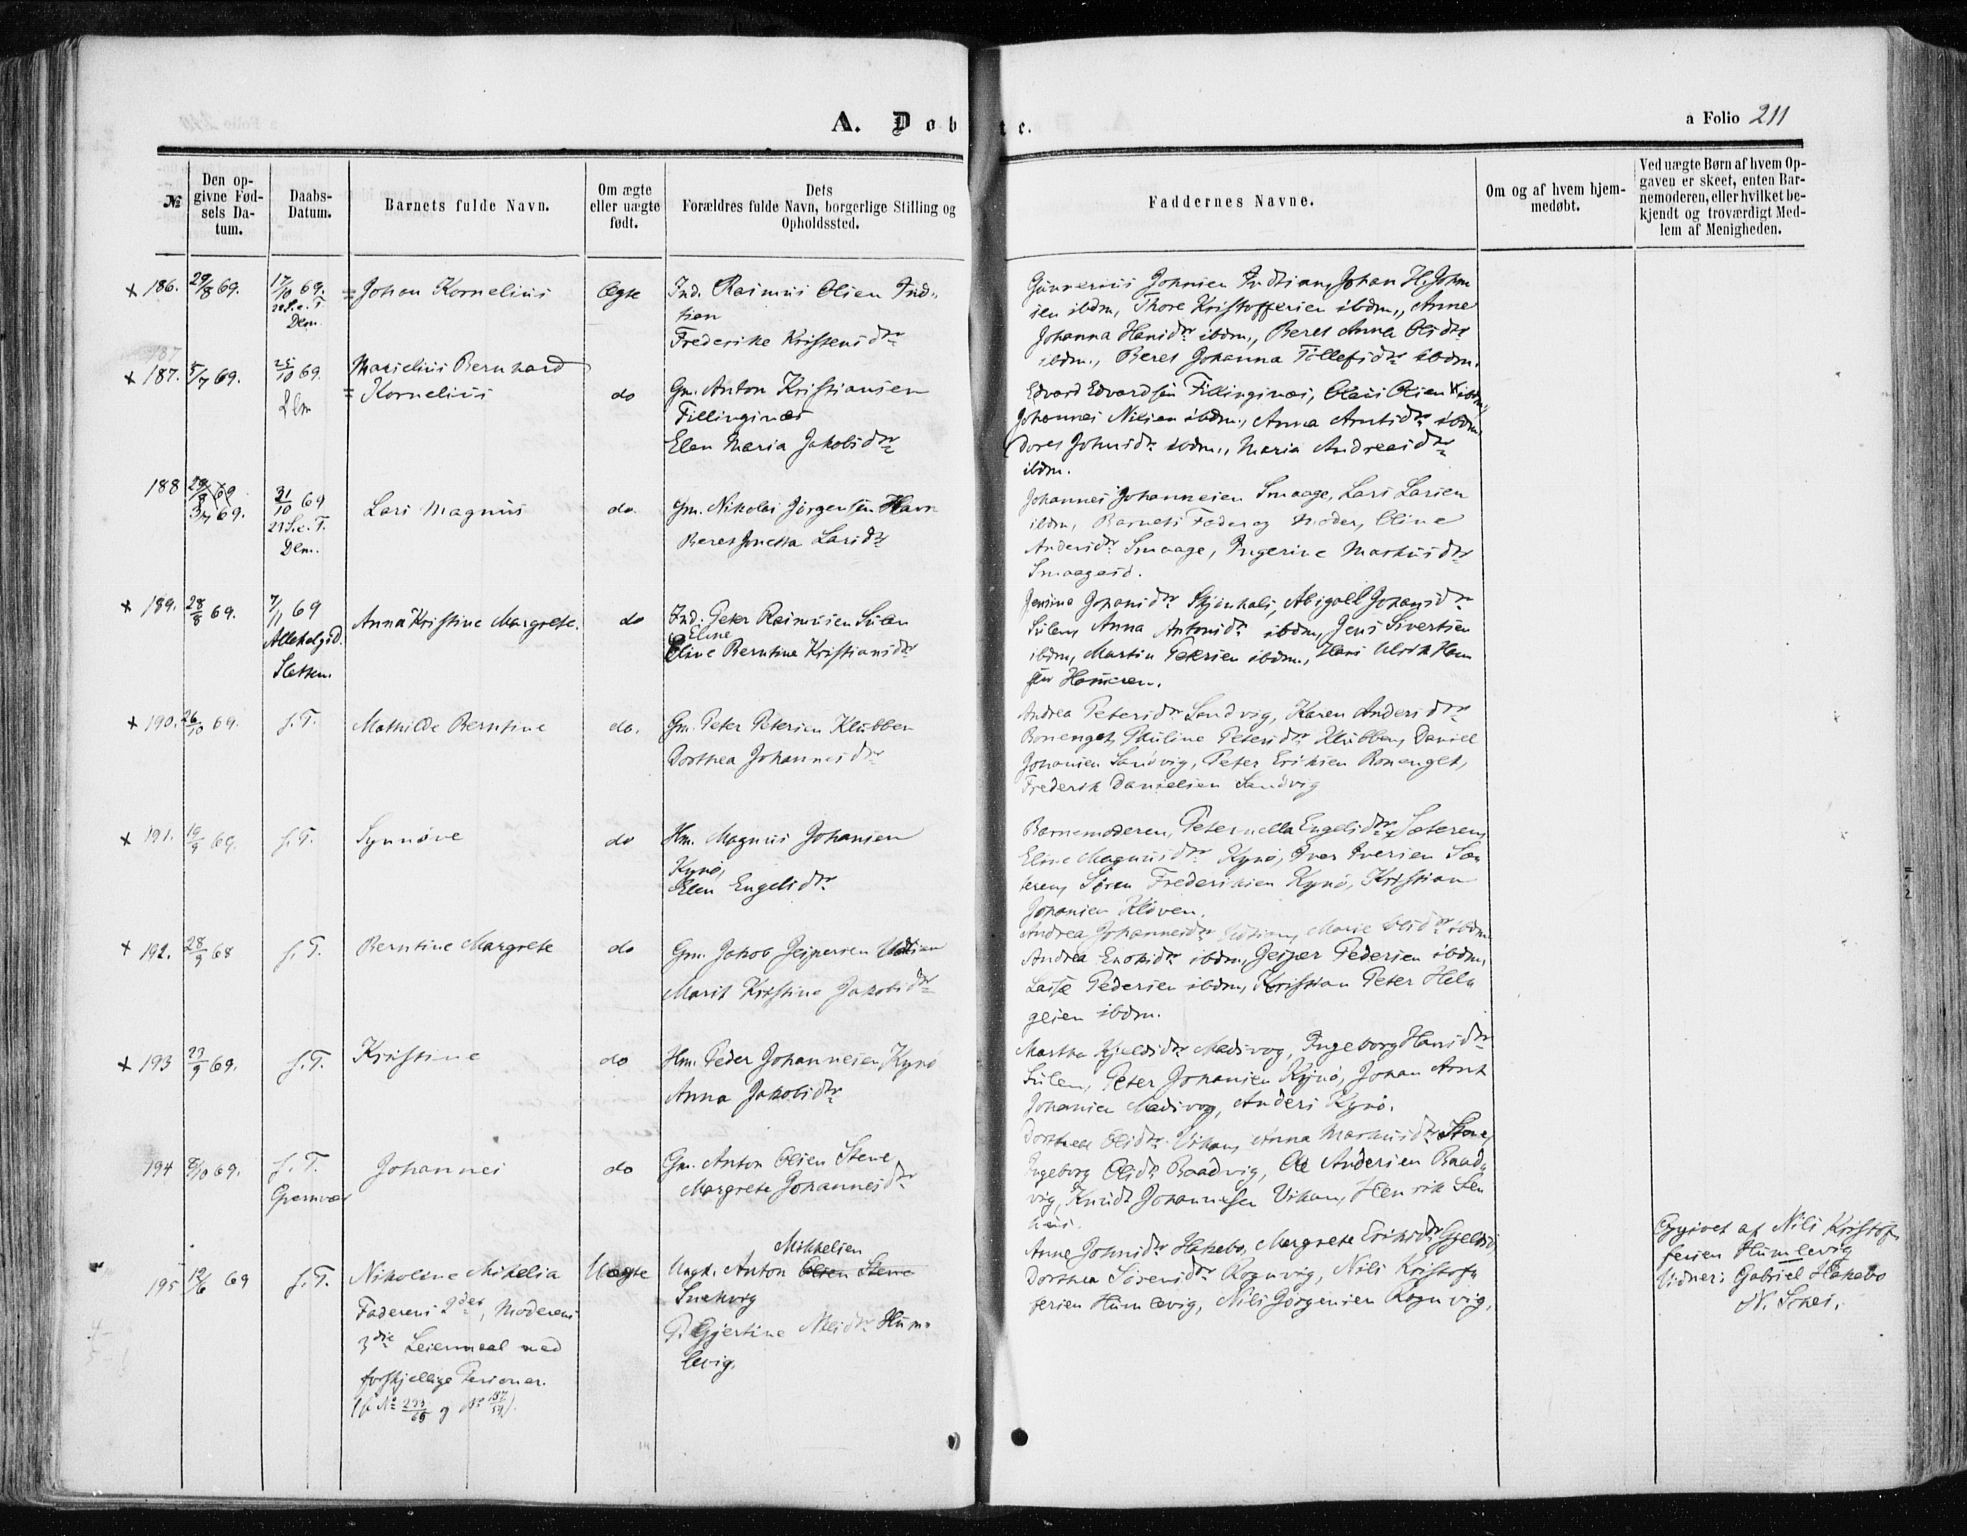 A. Døbte.
a Folio 211
№
Den opgivne Fødsels Datum.
Daabs-Datum.
Barnets fulde Navn.
Om ægte eller uægte født.
Dets Forældres fulde Navn, borgerlige Stilling og Opholdssted.
Faddernes Navne.
Om og af hvem hjemmedøbt.
Ved uægte Børn af hvem Opgaven er skeet, enten Barnemoderen, eller hvilket bekjendt og troværdigt Medlem af Menigheden.
+ 186. 29/8 69. 17/10 69.
Dlm.
Johan Kornelius
Ægte
Ind. Rasmus Olsen
Frederike Kristensdtr
Gunnerius Johnsen
Thore Kristoffersen ibdm., Anne
Johanna Hansdtr ibdm., Beret Anna Olsdtr
ibdm., Beret Johanna Tollefsdtr ibdm.
187
+ 187. 5/7 69. 25/10 69.
Dlm
Marselius Bernhard
Kornelius
do
Gm. Anton Kristiansen
Fillingsnæs
Elen Maria Jakobsdtr
Edvard Edvardsen Fillingsnæs, Olaus Olsen ibdm
Johannes Nilsen ibdm., Anna Arntsdtr ibdm,
Doret Johnsdtr ibdm., Maria Andreasdtr
ibdm.
188
3/7 69. 31/10 69
Dlm.
Lars Magnus
do.
Gm. Nikolai Jørgensen Havn
Beret Jonetta Larsdtr
Johannes Johannesen Smaage, Lars Larsen
ibdm, Barnets Fader og Moder, Oline
Andersdtr Smaage, Ingerine Markusdtr
+ 189. 28/8 69. 7/11 69
Allehelgsd.
Sletten.
Anna Kristine Margrete.
do
Ind. Peter Rasmusen Sulen
Eline
Berntine Kristiansdtr
Jensine Johansdtr Skjønhals, Abigael Johansdtr
Sulen, Anna Antonsdtr ibdm, Jens Sivertsen
ibdm, Martin Petersen ibdm., Hans Ulrik
Hammeren.
+ 190. 26/10 69. s. T.
Mathilde Berntine
do.
Gm. Peter Petersen Klubben
Dorthea Johannesdtr
Andrea Petersdtr Sandvig, Karen Andersdtr
Ronenget, Pauline Petersdtr Klubben, Daniel
Johansen Sandvig, Peter Eriksen Ronenget,
Frederik Danielsen Sandvig
+ 191. 19/9 69. s. T.
Synnøve
do
Hm. Magnus Johansen
Kynø,
Elen Engelsdtr.
Barnemoderen, Peternella Engelsdtr, Sæteren,
Eline Magnusdtr Kynø, Iver Iversen Sæ
teren, Søren Frederiksen Kynø, Kristian
Johansen Kløven.
+ 192. 28/9 68 s. T.
Berntine Margrete
do
Gm. Jakob Jespersen
Marit Kristine Jakobsdtr
Andrea Johannesdtr
Marie Olsdtr ibdm
Andrea Enoksdtr ibdm, Jesper Pedersen ibdm,
Lasse Pedersen ibdm, Kristian Peter Hel
gesen ibdm.
+ 193 23/9 69. s. T.
Kristine
do
Hm. Peder Johannesen Kynø
Anna Jakobsdtr
Martha Kjeldsdtr Medsvog, Ingeborg Hansdtr
Sulen, Peter Johansen Kynø, Johan Arnt
Johansen Medsvog, Anders Kynø.
194 8/10 69. s. T.
Johannes
do
Gm. Anton Olsen Stene
Margrete Johannesdtr
Dorthea Olsdtr Vikan, Anna Markusdtr Stene,
Ingeborg Olsdtr Baadvig, Ole Andersen Baad
vig, Knudt Johannesen Vikan, Henrik
195 12/6 69 s. T.
Nikoline Mikelia
Faderens 2det, Moderens
3die Leiermaal med
forskjellige Personer.
Uægte
Mikkelsen
Ungk. Anton Olsen Stene
P. Gjertine Nilsdtr Hum
levig.
Anne Johnsdtr Hakebo, Margrete Eriksdtr
Dorthea Sørensdtr Rognvig, Nils Kristof
fersen Humlevig, Nils Jørgensen Rognvig.
Opgivet af Nils Kristof
fersen Humlevig
Vidner: Gabriel Hakebo
N. Schei.